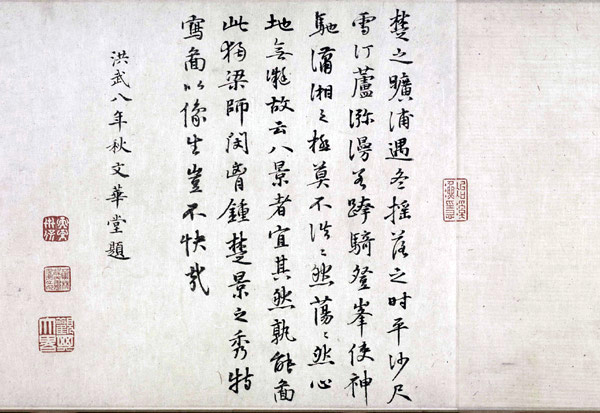 楚之曠浦遇冬搖落之時平沙尺
雪汀蘆瀰漫若跨騎登峯使神
馳瀟湘之極莫不浩〻然蕩〻然心
地無礙故云八景者宜其然孰能圖
此獨梁師閔胷鍾楚景之秀特
寫圖以像生豈不快哉
洪武八年秋文華堂題